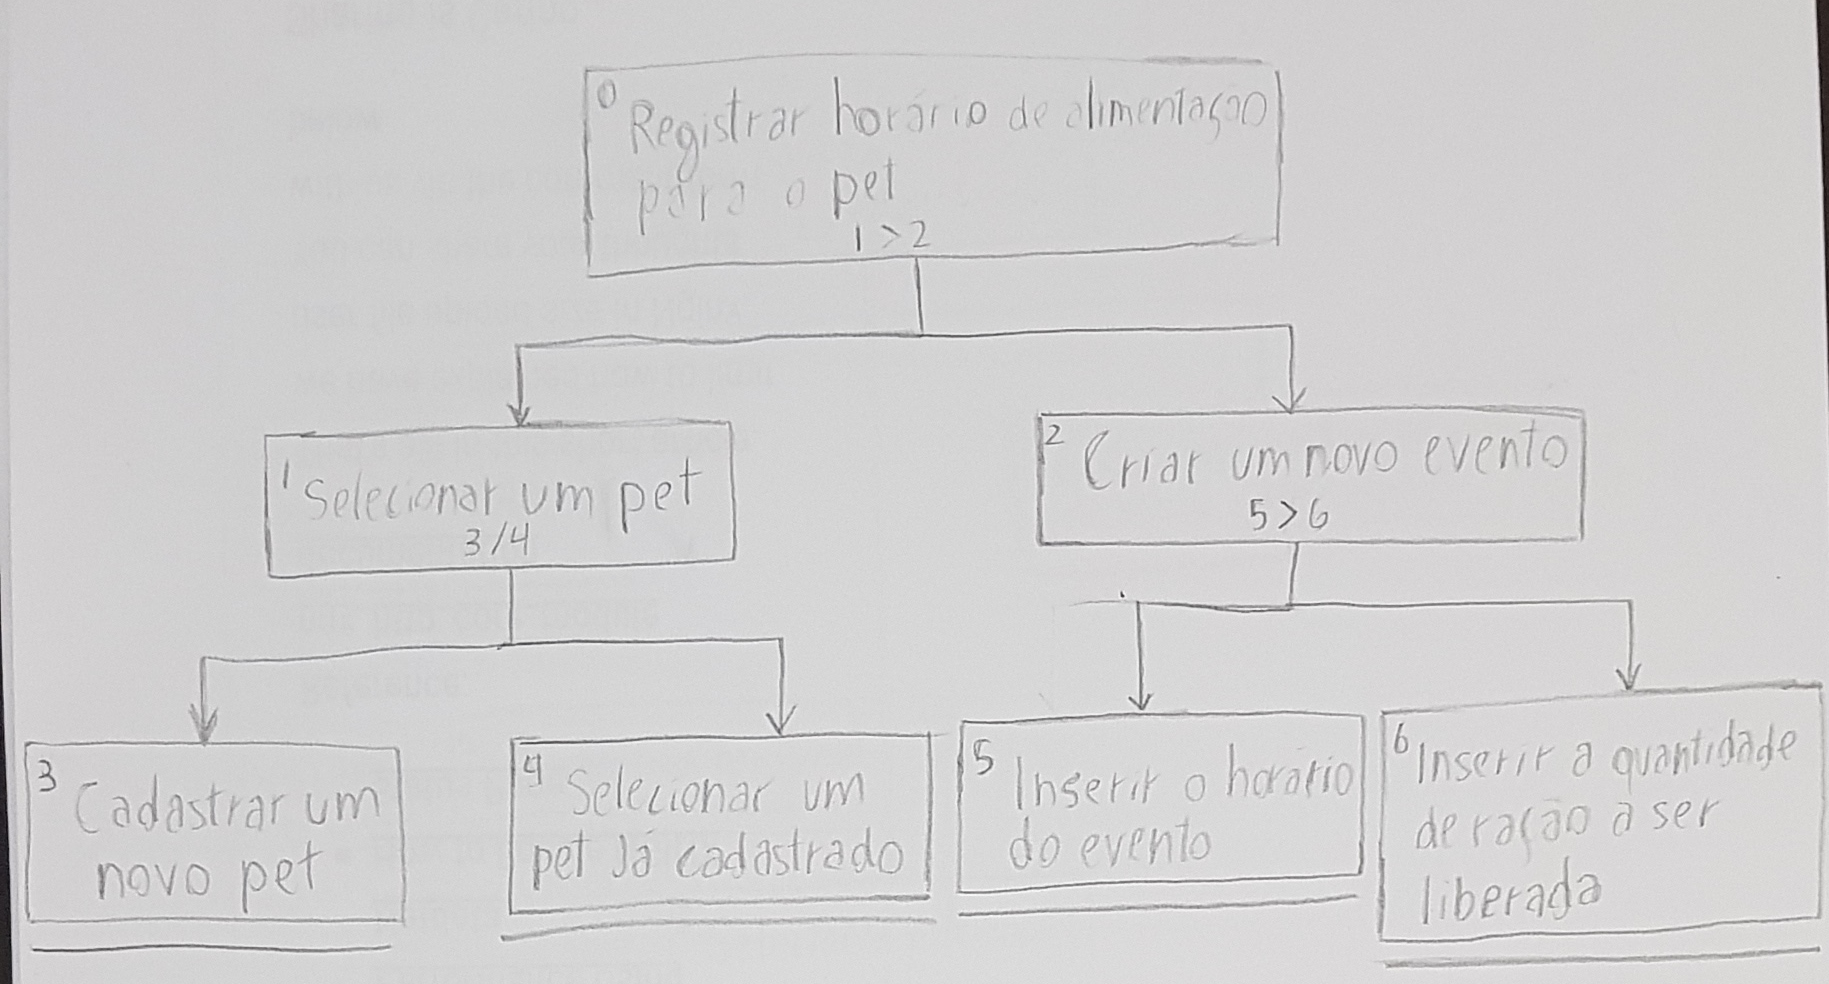 0
Registrar horário de alimentação
para o pet
1 > 2
1
Selecionar um pet
3/4
2
Criar um novo evento
5 > 6
3
Cadastrar um
novo pet
4
Selecionar um
pet Já cadastrado
5
Inserir o horário
do evento
6
Inserir a quantidade
de ração a ser
liberada